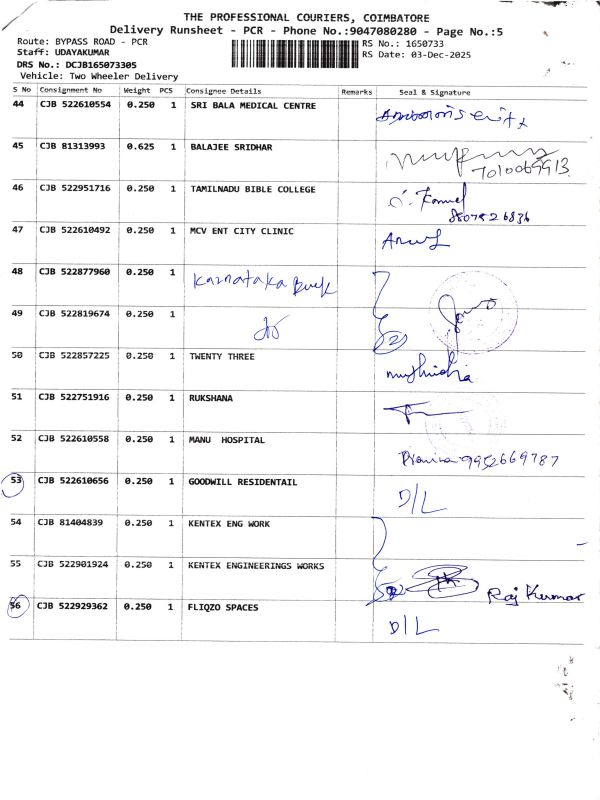 THE PROFESSIONAL COURIERS, COIMBATORE
Delivery Runsheet - PCR - Phone No.:9047080280 - Page No.:5
Route: BYPASS ROAD - PCR
Staff: UDAYAKUMAR
DRS No.: DCJB165073305
Vehicle: Two Wheeler Delivery
RS No.: 1650733
RS Date: 03-Dec-2025
S No Consignment No Weight PCS Consignee Details Remarks Seal & Signature
44 CJB 522610554 0.250 1 SRI BALA MEDICAL CENTRE
45 CJB 81313993 0.625 1 BALAJEE SRIDHAR
7010069913
46 CJB 522951716 0.250 1 TAMILNADU BIBLE COLLEGE
8807526836
47 CJB 522610492 0.250 1 MCV ENT CITY CLINIC
48 CJB 522877960 0.250 1 Karnataka Bank
49 CJB 522819674 0.250 1 do
2
50 CJB 522857225 0.250 1 TWENTY THREE
51 CJB 522751916 0.250 1 RUKSHANA
52 CJB 522610558 0.250 1 MANU HOSPITAL
9952669787
53 CJB 522610656 0.250 1 GOODWILL RESIDENTAIL D/L
54 CJB 81404839 0.250 1 KENTEX ENG WORK
55 CJB 522901924 0.250 1 KENTEX ENGINEERINGS WORKS Raj Kumar
56 CJB 522929362 0.250 1 FLIQZO SPACES D/L